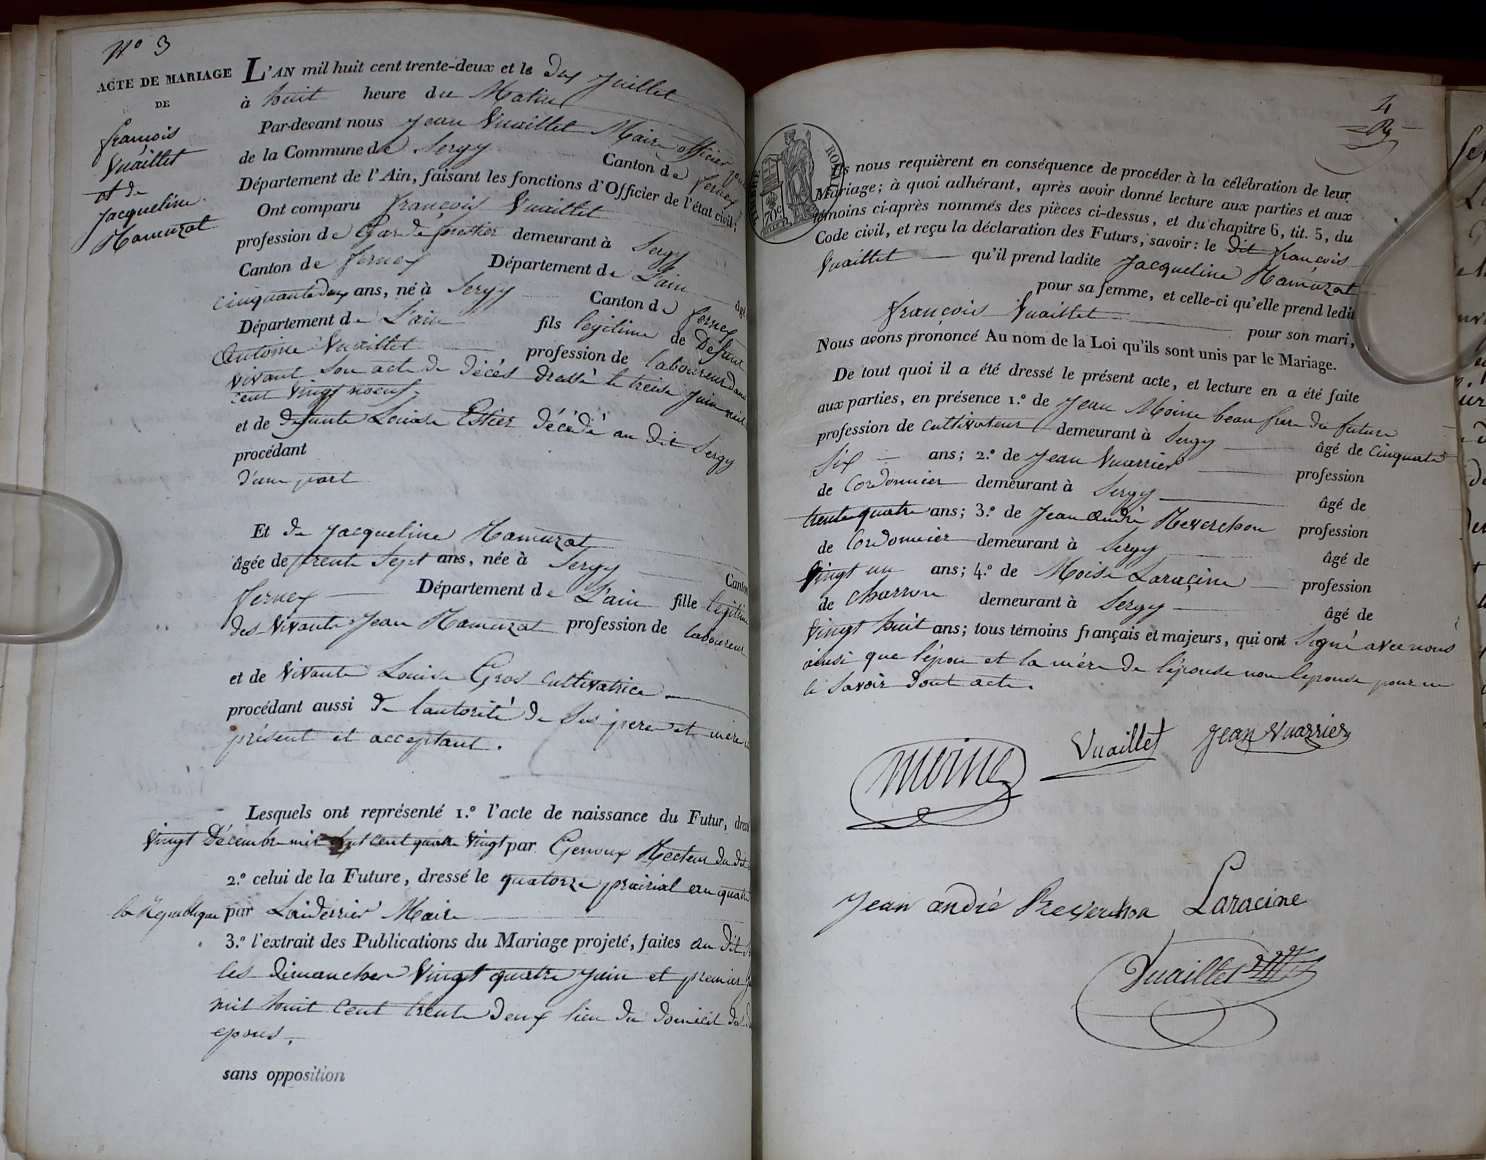 N° 3
ACTE DE MARIAGE
DE
françois
Vuaillet
et de
Jacqueline
Hamuzat
L'AN mil huit cent trente-deux et le dix Juillet
à huit heure du Matin
Par-devant nous Jean Vuaillet Maire officier
de la Commune de Sergy Canton de ferney
Département de l'Ain, faisant les fonctions d'Officier de l'état civil;
Ont comparu François Vuaillet
profession de Garde forestier demeurant à Sergy
Canton de ferney Département de L'ain âgé
cinquante deux ans, né à Sergy Canton de ferney
Département de L'ain fils légitime de Defunt
Antoine Vuaillet profession de laboureur dans
vivant son acte de décès dressé le treize Juin mil
cent vingt noeuf
et de defunte Louise Estier décédé au dit Sergy
procédant
d'une part
Et de Jacqueline Hamuzat
âgée de trente sept ans, née à Sergy Canton
ferney Département de L'ain fille légitime
des vivants Jean Hamuzat profession de laboureur
et de vivante Louise Gros cultivatrice
procédant aussi de l'autorité de ses pere et mère
présent et acceptant.
Lesquels ont représenté 1.° l'acte de naissance du Futur, dressé
vingt Décembre mil sept cent quatre vingt par Genoux Recteur du dit
2.° celui de la Future, dressé le quatorze prairial an quatre
la Republique par Maire
3.° l'extrait des Publications du Mariage projeté, faites au dit
les dimanches vingt quatre juin et premier
mil huit cent trente deux lieu du domicil des
epoux.
sans opposition
4
TIMBRE ROYAL
70c
Ils nous requièrent en conséquence de procéder à la célébration de leur
Mariage; à quoi adhérant, après avoir donné lecture aux parties et aux
témoins ci-après nommés des pièces ci-dessus, et du chapitre 6, tit. 5, du
Code civil, et reçu la déclaration des Futurs, savoir: le dit françois
Vuaillet qu'il prend ladite Jacqueline Hamuzat
pour sa femme, et celle-ci qu'elle prend ledit
françois Vuaillet pour son mari,
Nous avons prononcé Au nom de la Loi qu'ils sont unis par le Mariage.
De tout quoi il a été dressé le présent acte, et lecture en a été faite
aux parties, en présence 1.° de Jean Moine beau frere du future
profession de cultivateur demeurant à Sergy âgé de cinquante
six ans; 2.° de Jean Vuarrier profession
de Cordonnier demeurant à Sergy âgé de
trente quatre ans; 3.° de Jean André Reverchon profession
de Cordonnier demeurant à Sergy âgé de
vingt un ans; 4.° de Moïse Laracine profession
de charron demeurant à Sergy âgé de
vingt huit ans; tous témoins français et majeurs, qui ont signé avec nous
ainsi que l'époux et la mère de l'épouse non l'epouse pour ne
le savoir dont acte.
Moine Vuaillet Jean Vuarrier
Jean andré Reverchon Laracine
Vuaillet